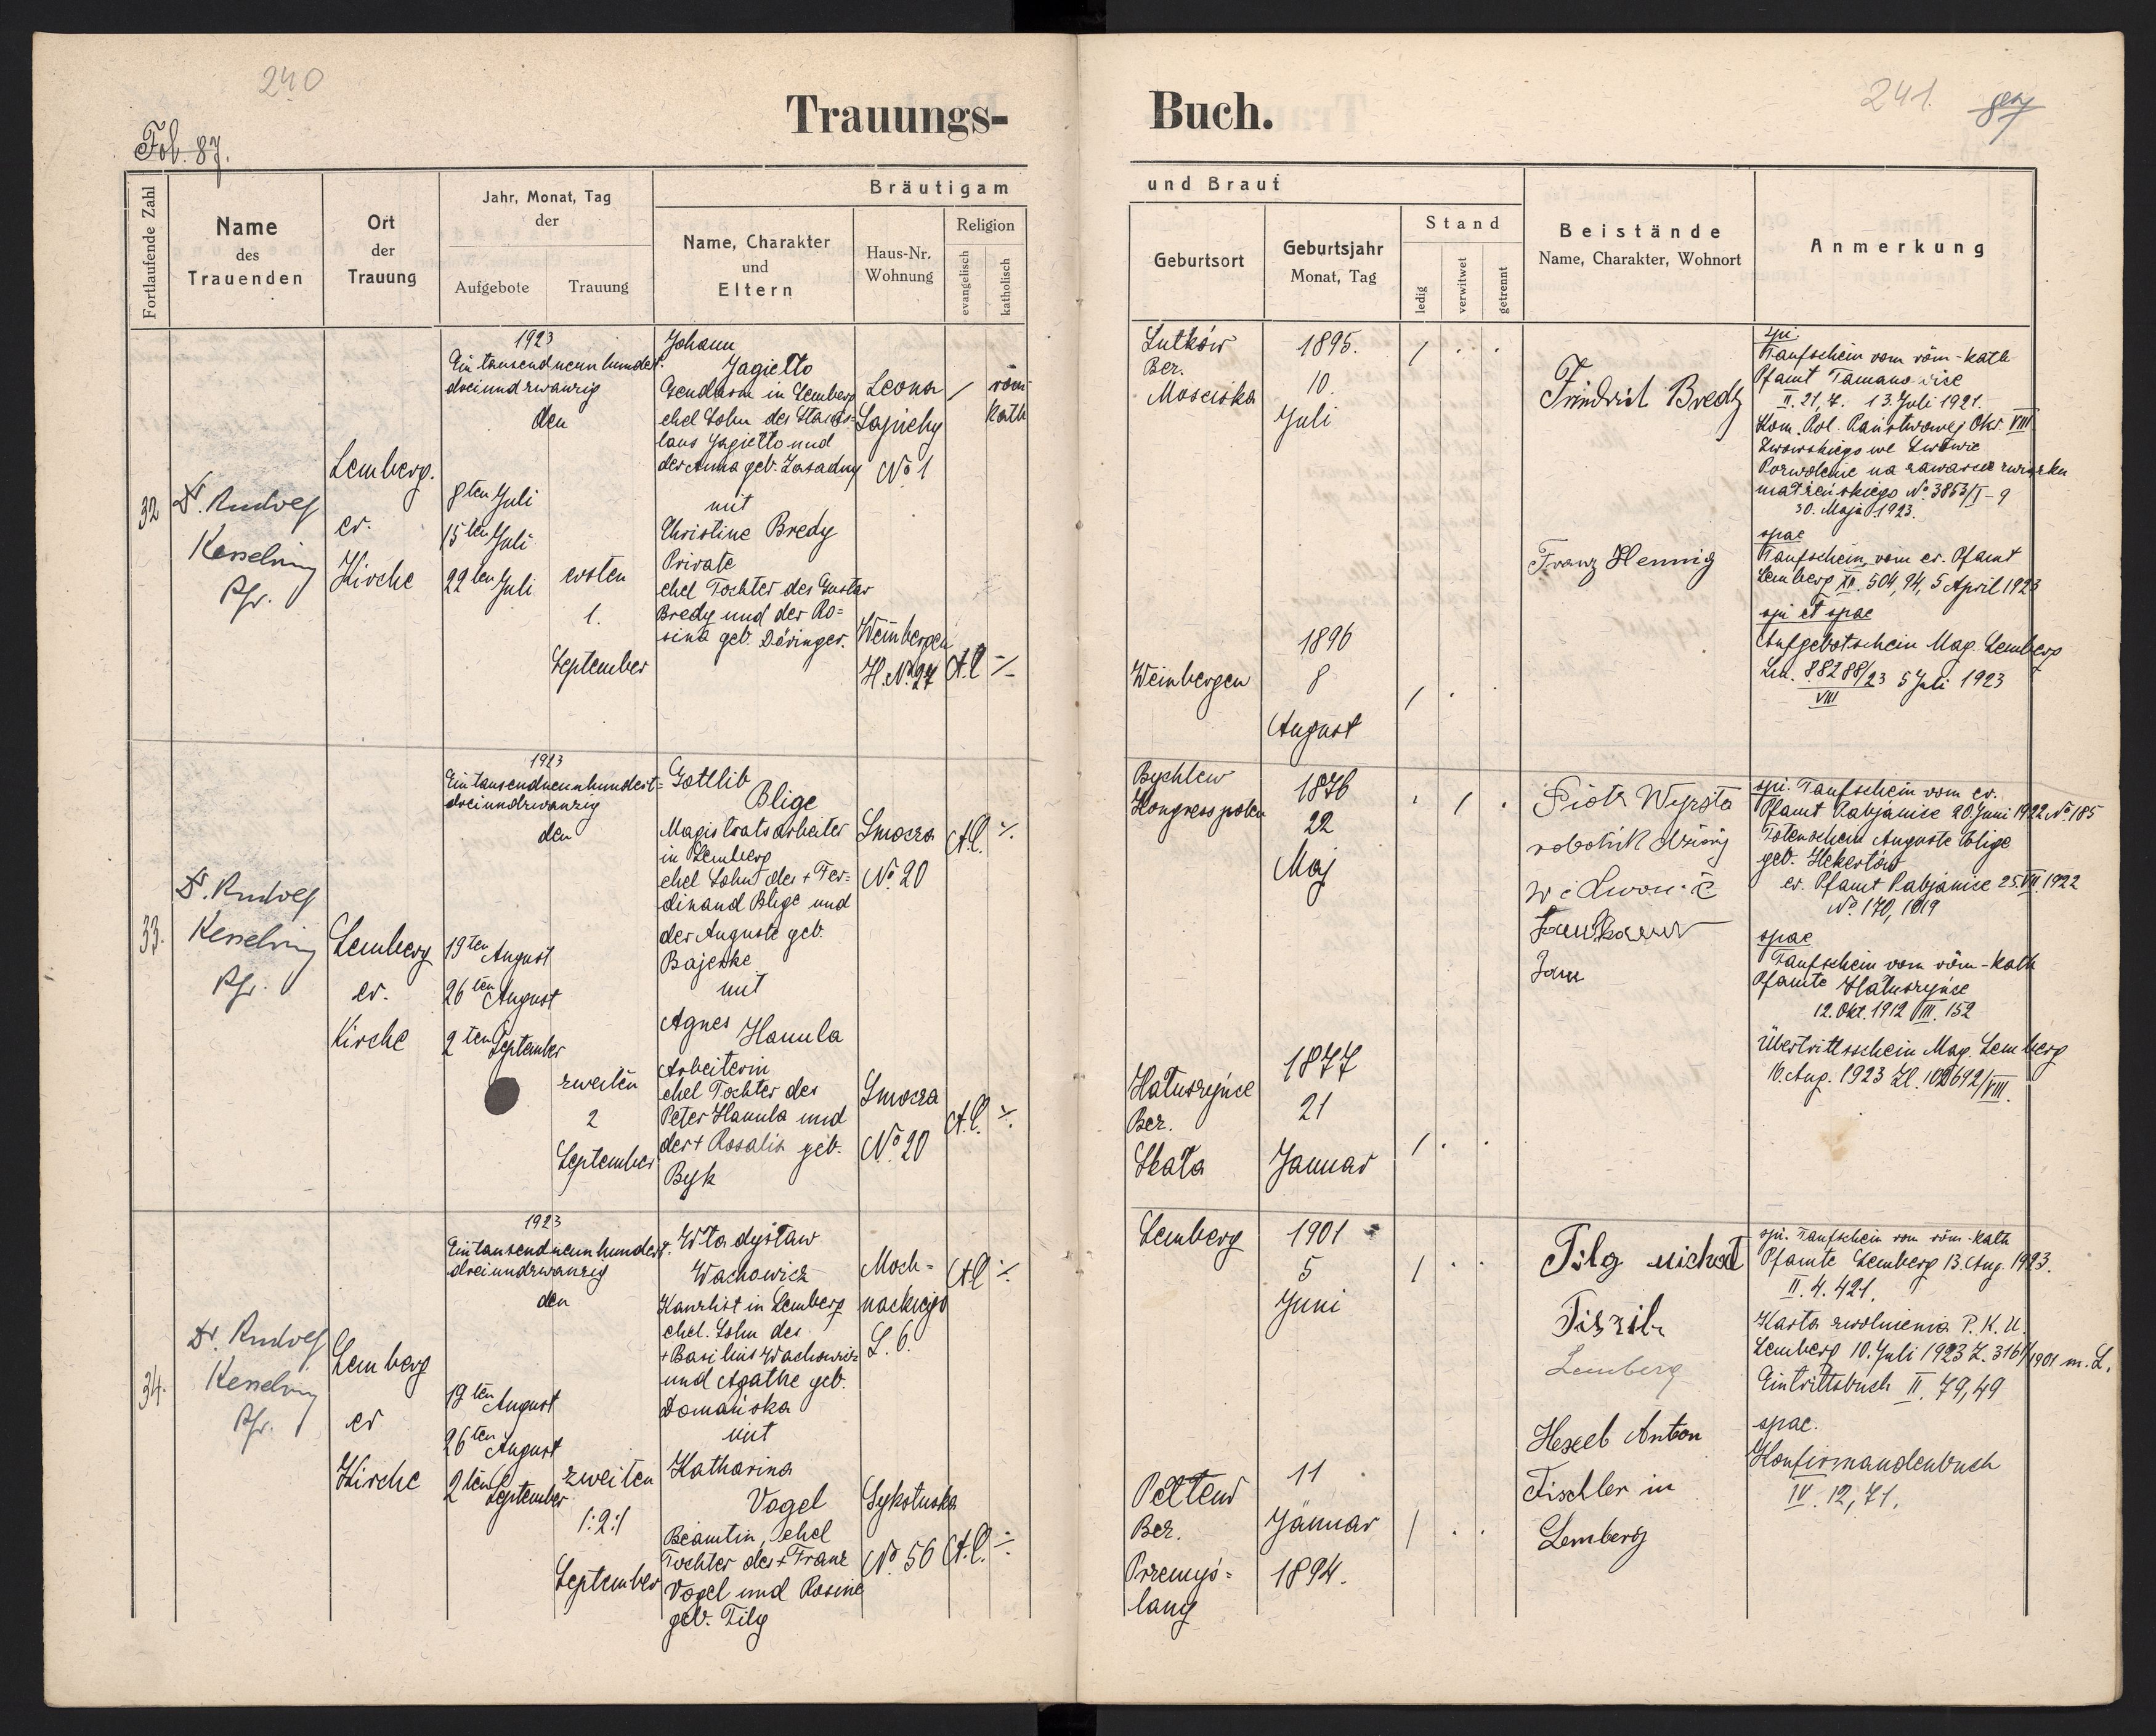 240
Fol. 87.
Trauungs-
Fortlaufende Zahl
Name
des
Trauenden
Ort
der
Trauung
Jahr, Monat, Tag
der
Aufgebote
Trauung
Bräutigam
Name, Charakter
und
Eltern
Haus-Nr.
Wohnung
Religion
evangelisch
katholisch
32
Dr. Rudolf
Kesselring
Pfr.
Lemberg.
ev.
Kirche
1923
Eintausendneunhundert
dreiundzwanzig
den
8ten Juli
15ten Juli
22ten Juli
ersten
1.
September
Johann
Jagiełło
Gendarm in Lemberg
ehel Sohn des Stanis-
laus Jagiełło und
der Anna geb. Zasadny
mit
Christine Bredy
Private
ehel Tochter des Gustav
Bredy und der Ro=
sina geb. Däringer.
Leona
Sapiehy
No 1
Weinbergen
H. No 27
/
röm-
kath
A.C. ./.
33.
Dr. Rudolf
Kesselring
Pfr.
Lemberg
ev.
Kirche
1923
Eintausendneunhundert=
dreiundzwanzig
den
19ten August
26ten August
2ten September
zweiten
2
September
Gottlib
Blige
Magistratsarbeiter
in Lemberg
ehel Sohn des + Fer=
dinand Blige und
der Auguste geb.
Bajeske
mit
Agnes Hanula
Arbeiterin
ehel Tochter des
Peter Hanula und
der + Rosalia geb.
Byk
Smocza
No 20
A.C. ./.
Smocza
No 20
A.C. ./.
34.
Dr. Rudolf
Kesselring
Pfr.
Lemberg
ev
Kirche
1923
Eintausendneunhundert.
dreiundzwanzig
den
19ten August
26ten August
2ten September
zweiten
/:2:/
September
Władysław
Wachowicz
Kanzlist in Lemberg
ehel. Sohn des
+ Basilius Wachowicz
und Agathe geb.
Domańska
mit
Katharina
Vogel
Beamtin, ehel
Tochter des + Franz
Vogel und Rosine
geb. Tilg
Moch=
nackiego
L. 6.
A.C. ./.
Sykstuska
No 56
A.C. ./.
241.
87
Buch.
und Braut
Geburtsort
Geburtsjahr
Monat, Tag
Stand
ledig
verwitwet
getrennt
Beistände
Name, Charakter, Wohnort
Anmerkung
Lutków
Ber.
Mosciska
1895.
10.
Juli
/ . .
Weinbergen
1896
8
August
/ . .
Friedrich Bredy
Franz Hennig
spi.
Taufschein vom röm-kath
Pfamt
II. 21, 7. 13. Juli 1921
Kom. Pol. Państwowej Okr. VIII
Lwowskiego we Lwowie
Pozwolenie na zawarcie związku
małżeńskiego No 3863/I-9
30. Maja 1923.
spae
Taufschein vom ev. Pfamt
Lemberg XV. 504, 94, 5 April 1923
spi et spae
Aufgebotschein Mag. Lemberg
Lu. 88288/23 5 Juli 1923
VIII
Bychlew
Kongresspolen
1876
22
Maj
. / .
Hałuszyńce
Ber.
Skała
1877
21
Januar
/ . .
Piotr
robotnik
Jan
spi. Taufschein vom ev.
Pfamt Pabjanice 20. Juni 1922 No 185
Totenschein Auguste Blige
geb.
ev. Pfamt Pabjanice 25. VII. 1922
No. 170, 1919
spae
Taufschein vom röm-kath
Pfamte Hałuszyńce
12. Okt. 1912 VIII. 152
Übertrittsschein Mag. Lemberg
16. Aug. 1923 Zl. 102692/VIII.
Lemberg
1901
5
Juni
/ . .
Pettend
Ber.
Przemyś=
lany
11
Jänuar
1894.
/ . .
Tilg Michael
Lemberg
Anton
Tischler in
Lemberg
spi. Taufschein vom röm-kath
Pfamte Lemberg 13. Aug. 1923.
II. 4. 421.
Karta zwolnienia P.K.U.
Lemberg 10. Juli 1923 Z. 3161/1901 m. L.
Eintrittsbuch II. 79, 49
spae.
Konfirmandenbuch
IV. 12, 71.